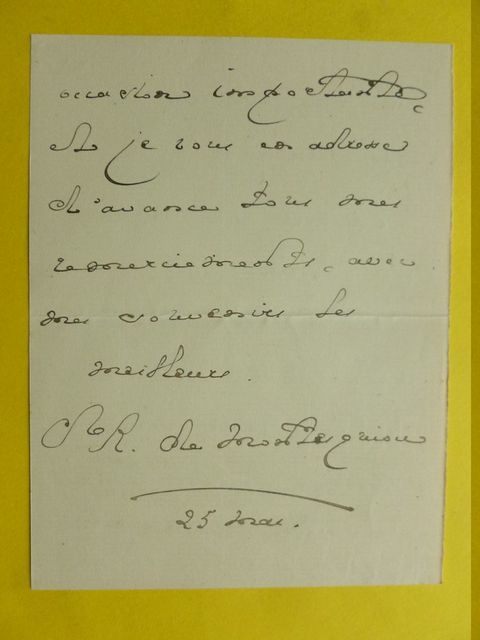 occasion importante,
et je vous en adresse
d'avance tous mes
remerciements, avec
mes souvenirs les
meilleurs.
R. de Montesquiou
25 mai.